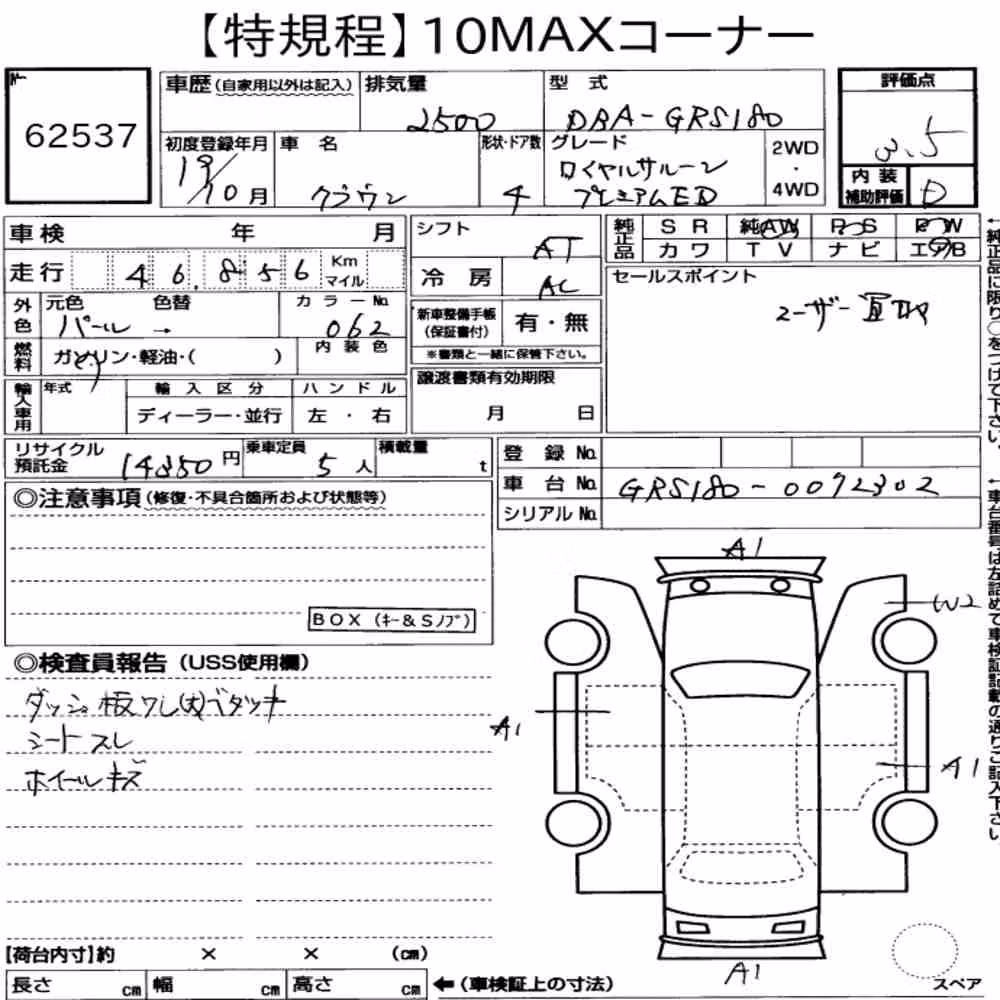 【特規程】10MAXコーナー
62537
車歴(自家用以外は記入)
排気量
2500
型 式
DBA-GRS180
評価点
3.5
初度登録年月
19/10月
車 名
クラウン
形状・ドア数
4
グレード
ロイヤルサルーン
プレミアムED
2WD
・
4WD
内 装
補助評価
D
車検 年 月
走行 46,856 Km
マイル
外色
元色 色替
パール →
カラーNo.
062
燃料
ガソリン・軽油・( )
内 装 色
輸入車用
年式
輸 入 区 分
ディーラー・並行
ハ ン ド ル
左 ・ 右
シフト
AT
冷 房
AC
新車整備手帳
(保証書付)
有・無
※書類と一緒に保管下さい。
譲渡書類有効期限
月 日
純正品
S R 純AW P・S P・W
カ ワ T V ナ ビ エアB
セールスポイント
ユーザー買取
←純正品に限り○をつけて下さい。
リサイクル
預託金
14350円
乗車定員
5人
積載量
t
登 録 No.
車 台 No.
GRS180-0072302
シリアルNo.
←車台番号は左詰めで車検証記載の通りご記入下さい。
◎注意事項(修復・不具合箇所および状態等)
BOX (キー&Sノブ)
◎検査員報告(USS使用欄)
ダッシュ板ワレ(大)ベタツキ
シートスレ
ホイールキズ
A1
W2
A1
A1
A1
スペア
【荷台内寸】約 × × (cm)
長さ cm 幅 cm 高さ cm
←(車検証上の寸法)